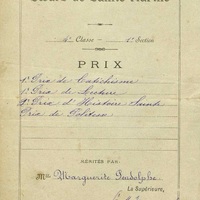 4e Classe — 1e Section
PRIX
1er Prix de Catéchisme
1er Prix de Lecture
1er Prix d'Histoire Sainte
Prix de
MÉRITÉS PAR:
Mlle Marguerite
La Supérieure,